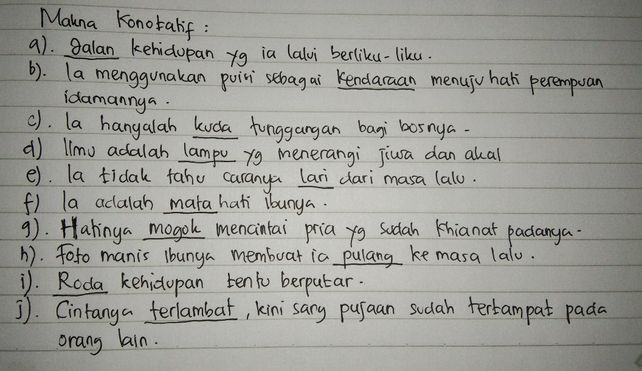 Makna Konotatif :
a). Jalan kehidupan yg ia lalui berliku-liku.
b). Ia menggunakan puisi sebagai kendaraan menuju hati perempuan
idamannya.
c). Ia hanyalah kuda tunggangan bagi bosnya.
d) Ilmu adalah lampu yg menerangi jiwa dan akal
e). Ia tidak tahu caranya lari dari masa lalu.
f) Ia adalah mata hati ibunya.
g). Hatinya mogok mencintai pria yg sudah khianat padanya.
h). Foto manis ibunya membuat ia pulang ke masa lalu.
i). Roda kehidupan tentu berputar.
j). Cintanya terlambat, kini sang pujaan sudah tertampat pada
orang lain.